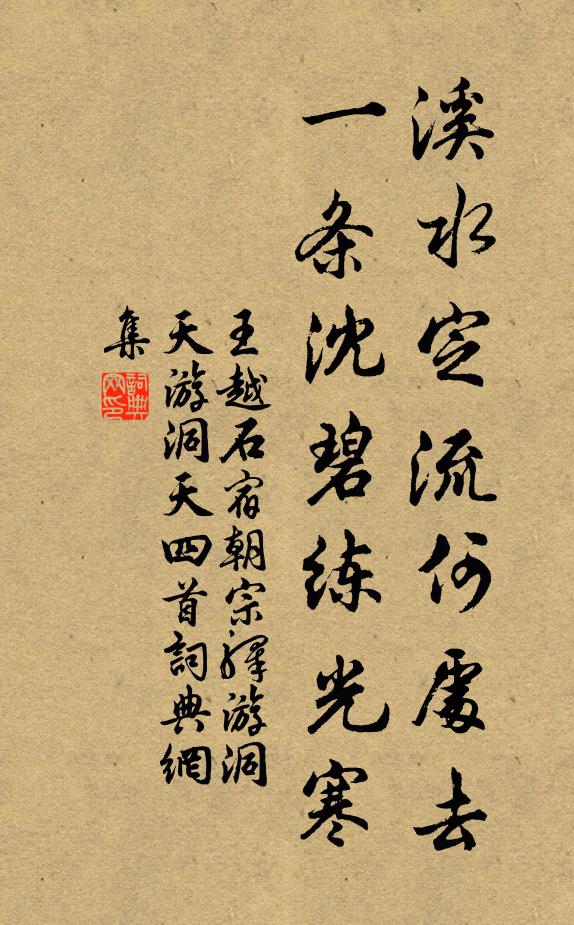 溪水定流何處去
一条沈碧练光寒
王越石宿朝宗驛游洞
天游洞天四首詞典網
集
詞典
网印